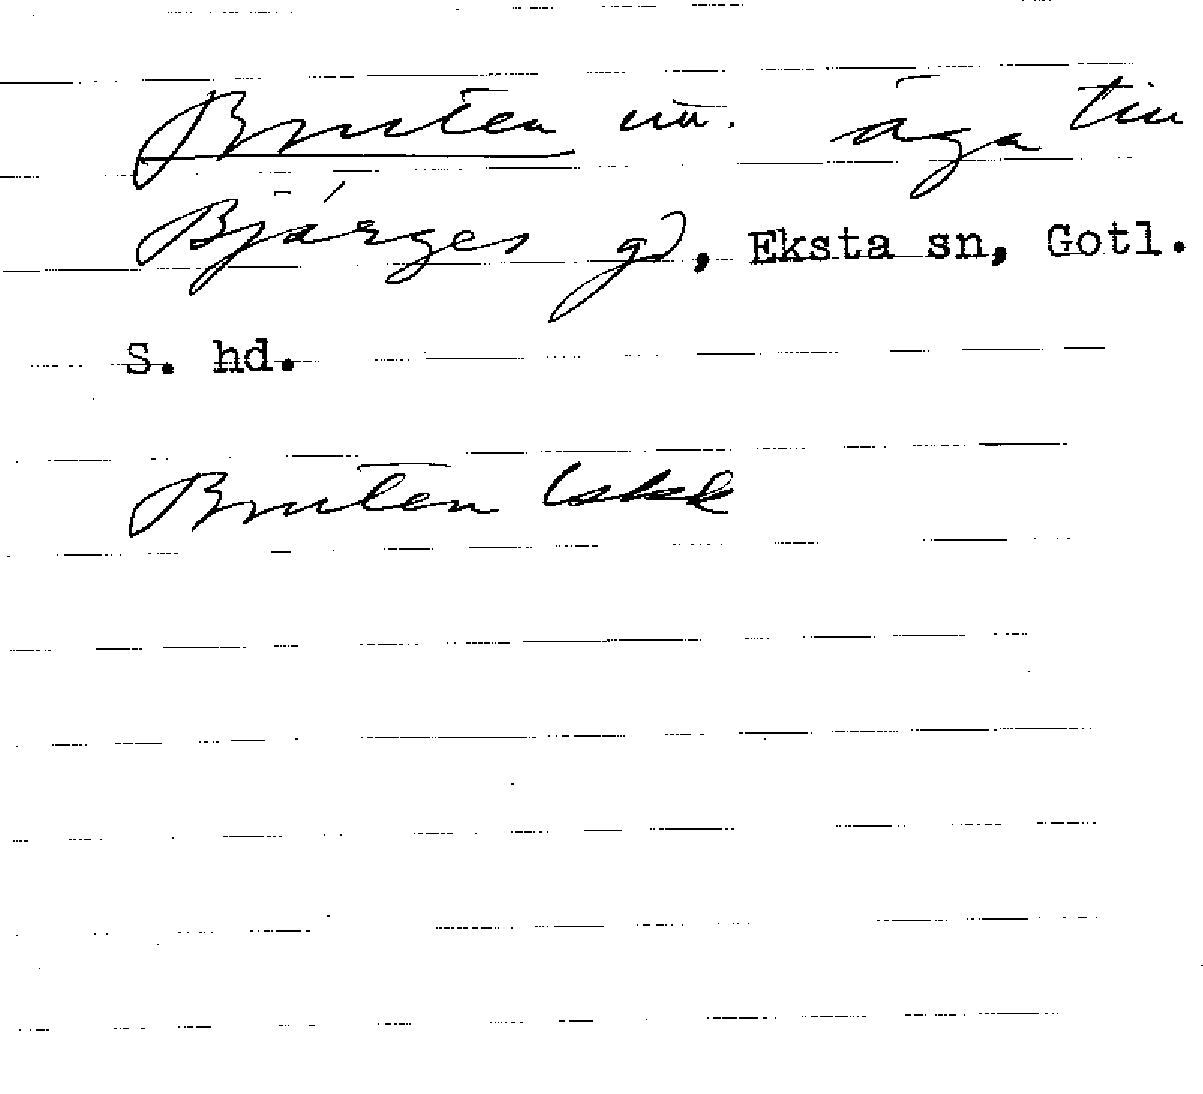 Bruten äga till
Bjärges gd, Eksta sn, Gotl.
S. hd.
Bruten